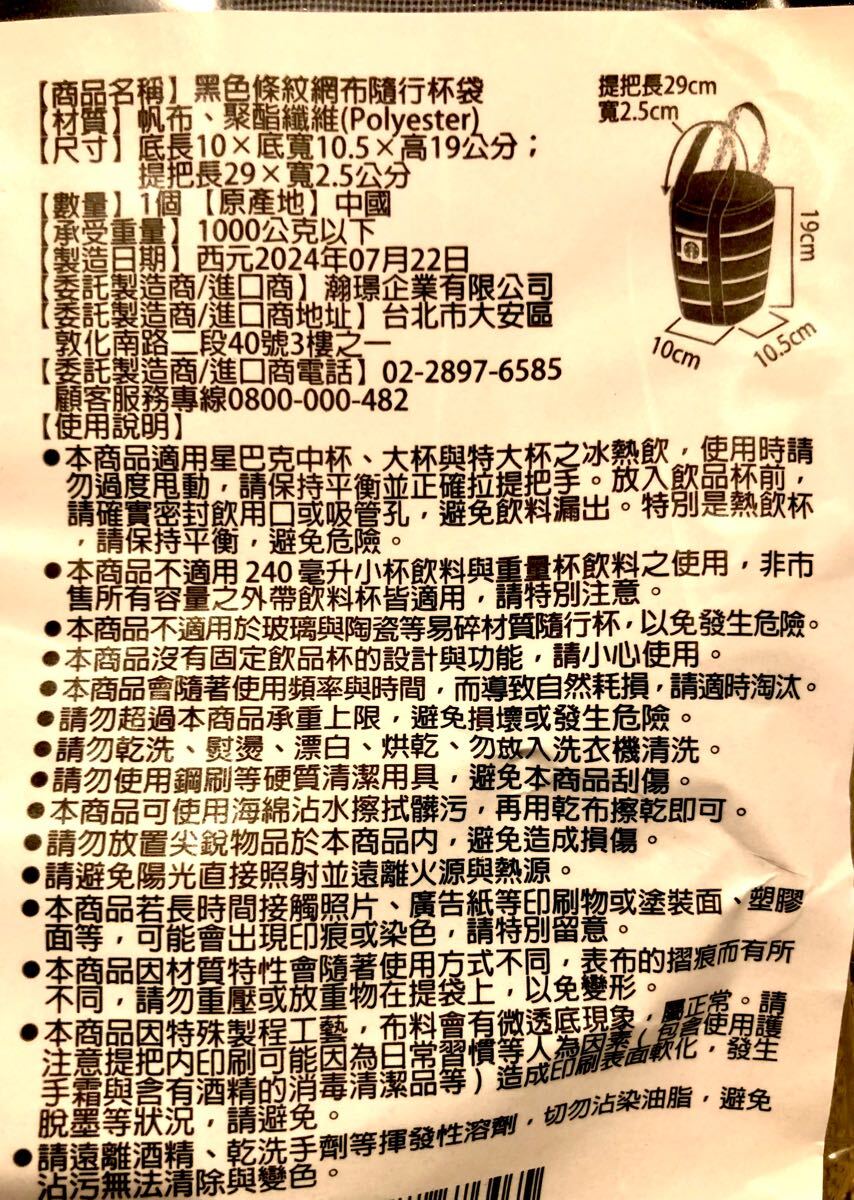 【商品名稱】黑色條紋網布隨行杯袋
【材質】帆布、聚酯纖維(Polyester)
【尺寸】底長10×底寬10.5×高19公分；
提把長29×寬2.5公分
【數量】1個 【原產地】中國
【承受重量】1000公克以下
【製造日期】西元2024年07月22日
【委託製造商/進口商】瀚璟企業有限公司
【委託製造商/進口商地址】台北市大安區
敦化南路二段40號3樓之一
【委託製造商/進口商電話】02-2897-6585
顧客服務專線0800-000-482
【使用說明】
提把長29cm
寬2.5cm
19cm
10cm
10.5cm
●本商品適用星巴克中杯、大杯與特大杯之冰熱飲，使用時請
勿過度甩動，請保持平衡並正確拉提把手。放入飲品杯前，
請確實密封飲用口或吸管孔，避免飲料漏出。特別是熱飲杯
，請保持平衡，避免危險。
●本商品不適用 240 毫升小杯飲料與重量杯飲料之使用，非市
售所有容量之外帶飲料杯皆適用，請特別注意。
●本商品不適用於玻璃與陶瓷等易碎材質隨行杯，以免發生危險。
●本商品沒有固定飲品杯的設計與功能，請小心使用。
●本商品會隨著使用頻率與時間，而導致自然耗損，請適時淘汰。
●請勿超過本商品承重上限，避免損壞或發生危險。
●請勿乾洗、熨燙、漂白、烘乾、勿放入洗衣機清洗。
●請勿使用鋼刷等硬質清潔用具，避免本商品刮傷。
●本商品可使用海綿沾水擦拭髒污，再用乾布擦乾即可。
●請勿放置尖銳物品於本商品內，避免造成損傷。
●請避免陽光直接照射並遠離火源與熱源。
●本商品若長時間接觸照片、廣告紙等印刷物或塗裝面、塑膠
面等，可能會出現印痕或染色，請特別留意。
●本商品因材質特性會隨著使用方式不同，表布的摺痕而有所
不同，請勿重壓或放重物在提袋上，以免變形。
●本商品因特殊製程工藝，布料會有微透底現象，屬正常。請
注意提把內印刷可能因為日常習慣等人為因素（包含使用護
手霜與含有酒精的消毒清潔品等）造成印刷表面軟化，發生
脫墨等狀況，請避免。
●請遠離酒精、乾洗手劑等揮發性溶劑，切勿沾染油脂，避免
沾污無法清除與變色。